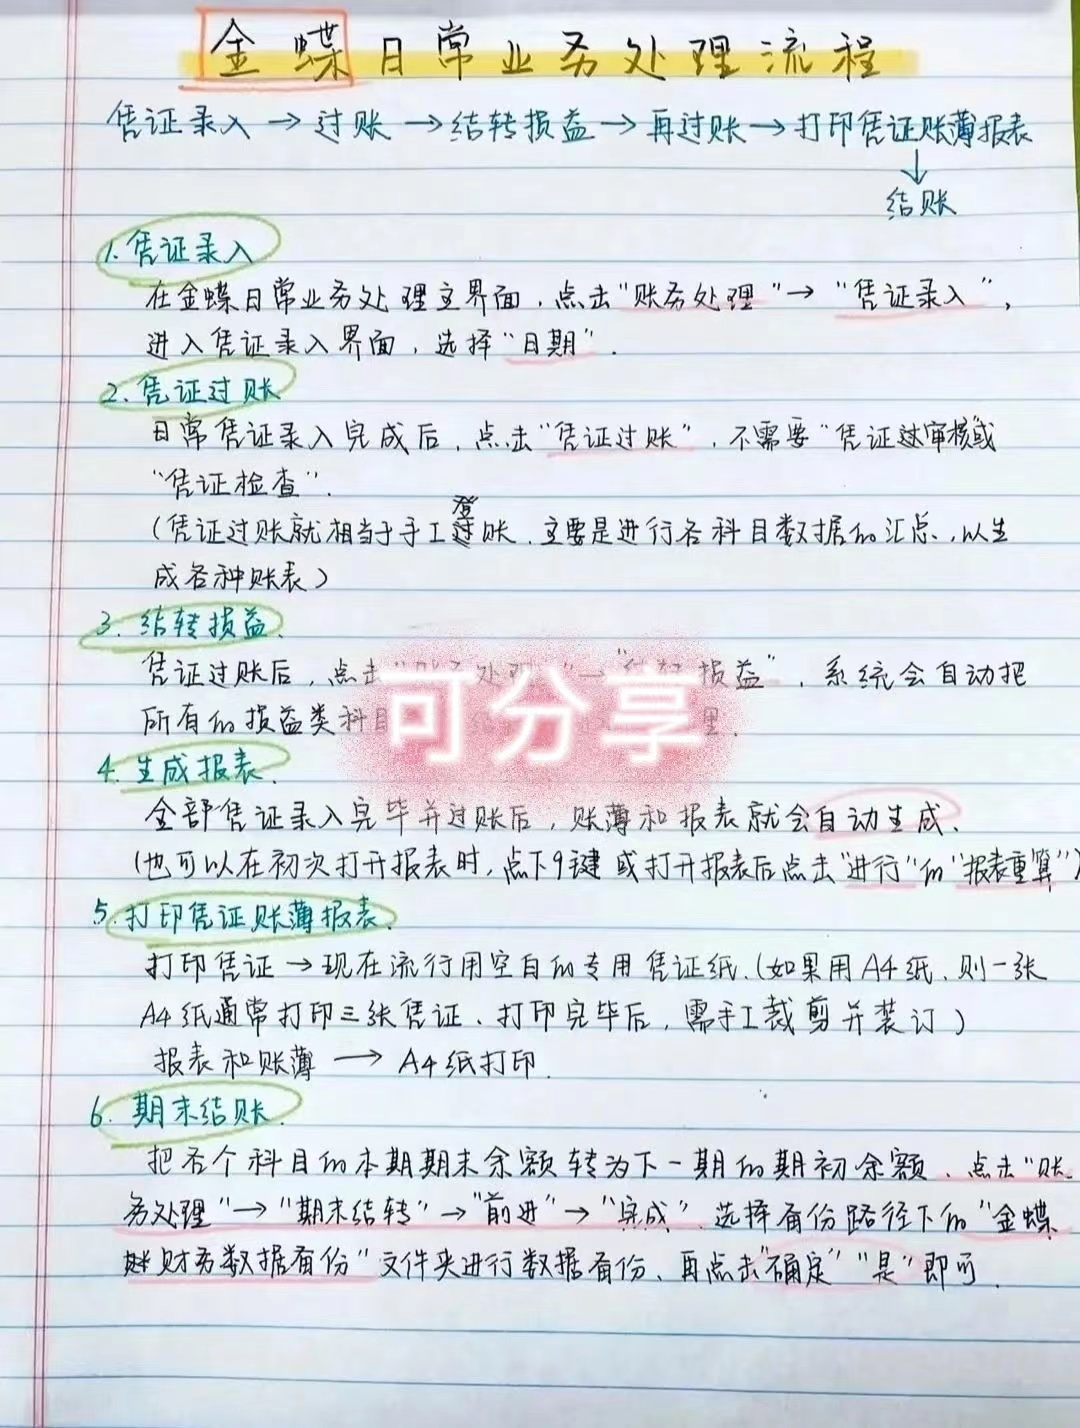 金蝶日常业务处理流程
凭证录入→过账→结转损益→再过账→打印凭证账薄报表
↓
结账
1.凭证录入
在金蝶日常业务处理主界面,点击"账务处理"→"凭证录入",
进入凭证录入界面,选择"日期".
2.凭证过账
日常凭证录入完成后,点击"凭证过账",不需要"凭证审核或
"凭证检查".
(凭证过账就相当于手工登账.主要是进行各科目数据的汇总,以生
成各种账表)
3.结转损益.
凭证过账后,点击 损益",系统会自动把
所有的损益类科目 里.
可分享
4.生成报表.
全部凭证录入完毕并过账后,账薄和报表就会自动生成.
(也可以在初次打开报表时,点下9键或打开报表后点击"进行"的"报表重算")
5.打印凭证账薄报表.
打印凭证→现在流行用空白的专用凭证纸.(如果用A4纸.则一张
A4纸通常打印三张凭证、打印完毕后,需手工裁剪并装订)
报表和账薄→A4纸打印.
6.期末结账.
把各个科目的本期期末余额转为下一期的期初余额.点击"账
务处理"→"期末结转"→"前进"→"完成".选择备份路径下的"金蝶
财务数据备份"文件夹进行数据备份、再点击"确定""是"即可.